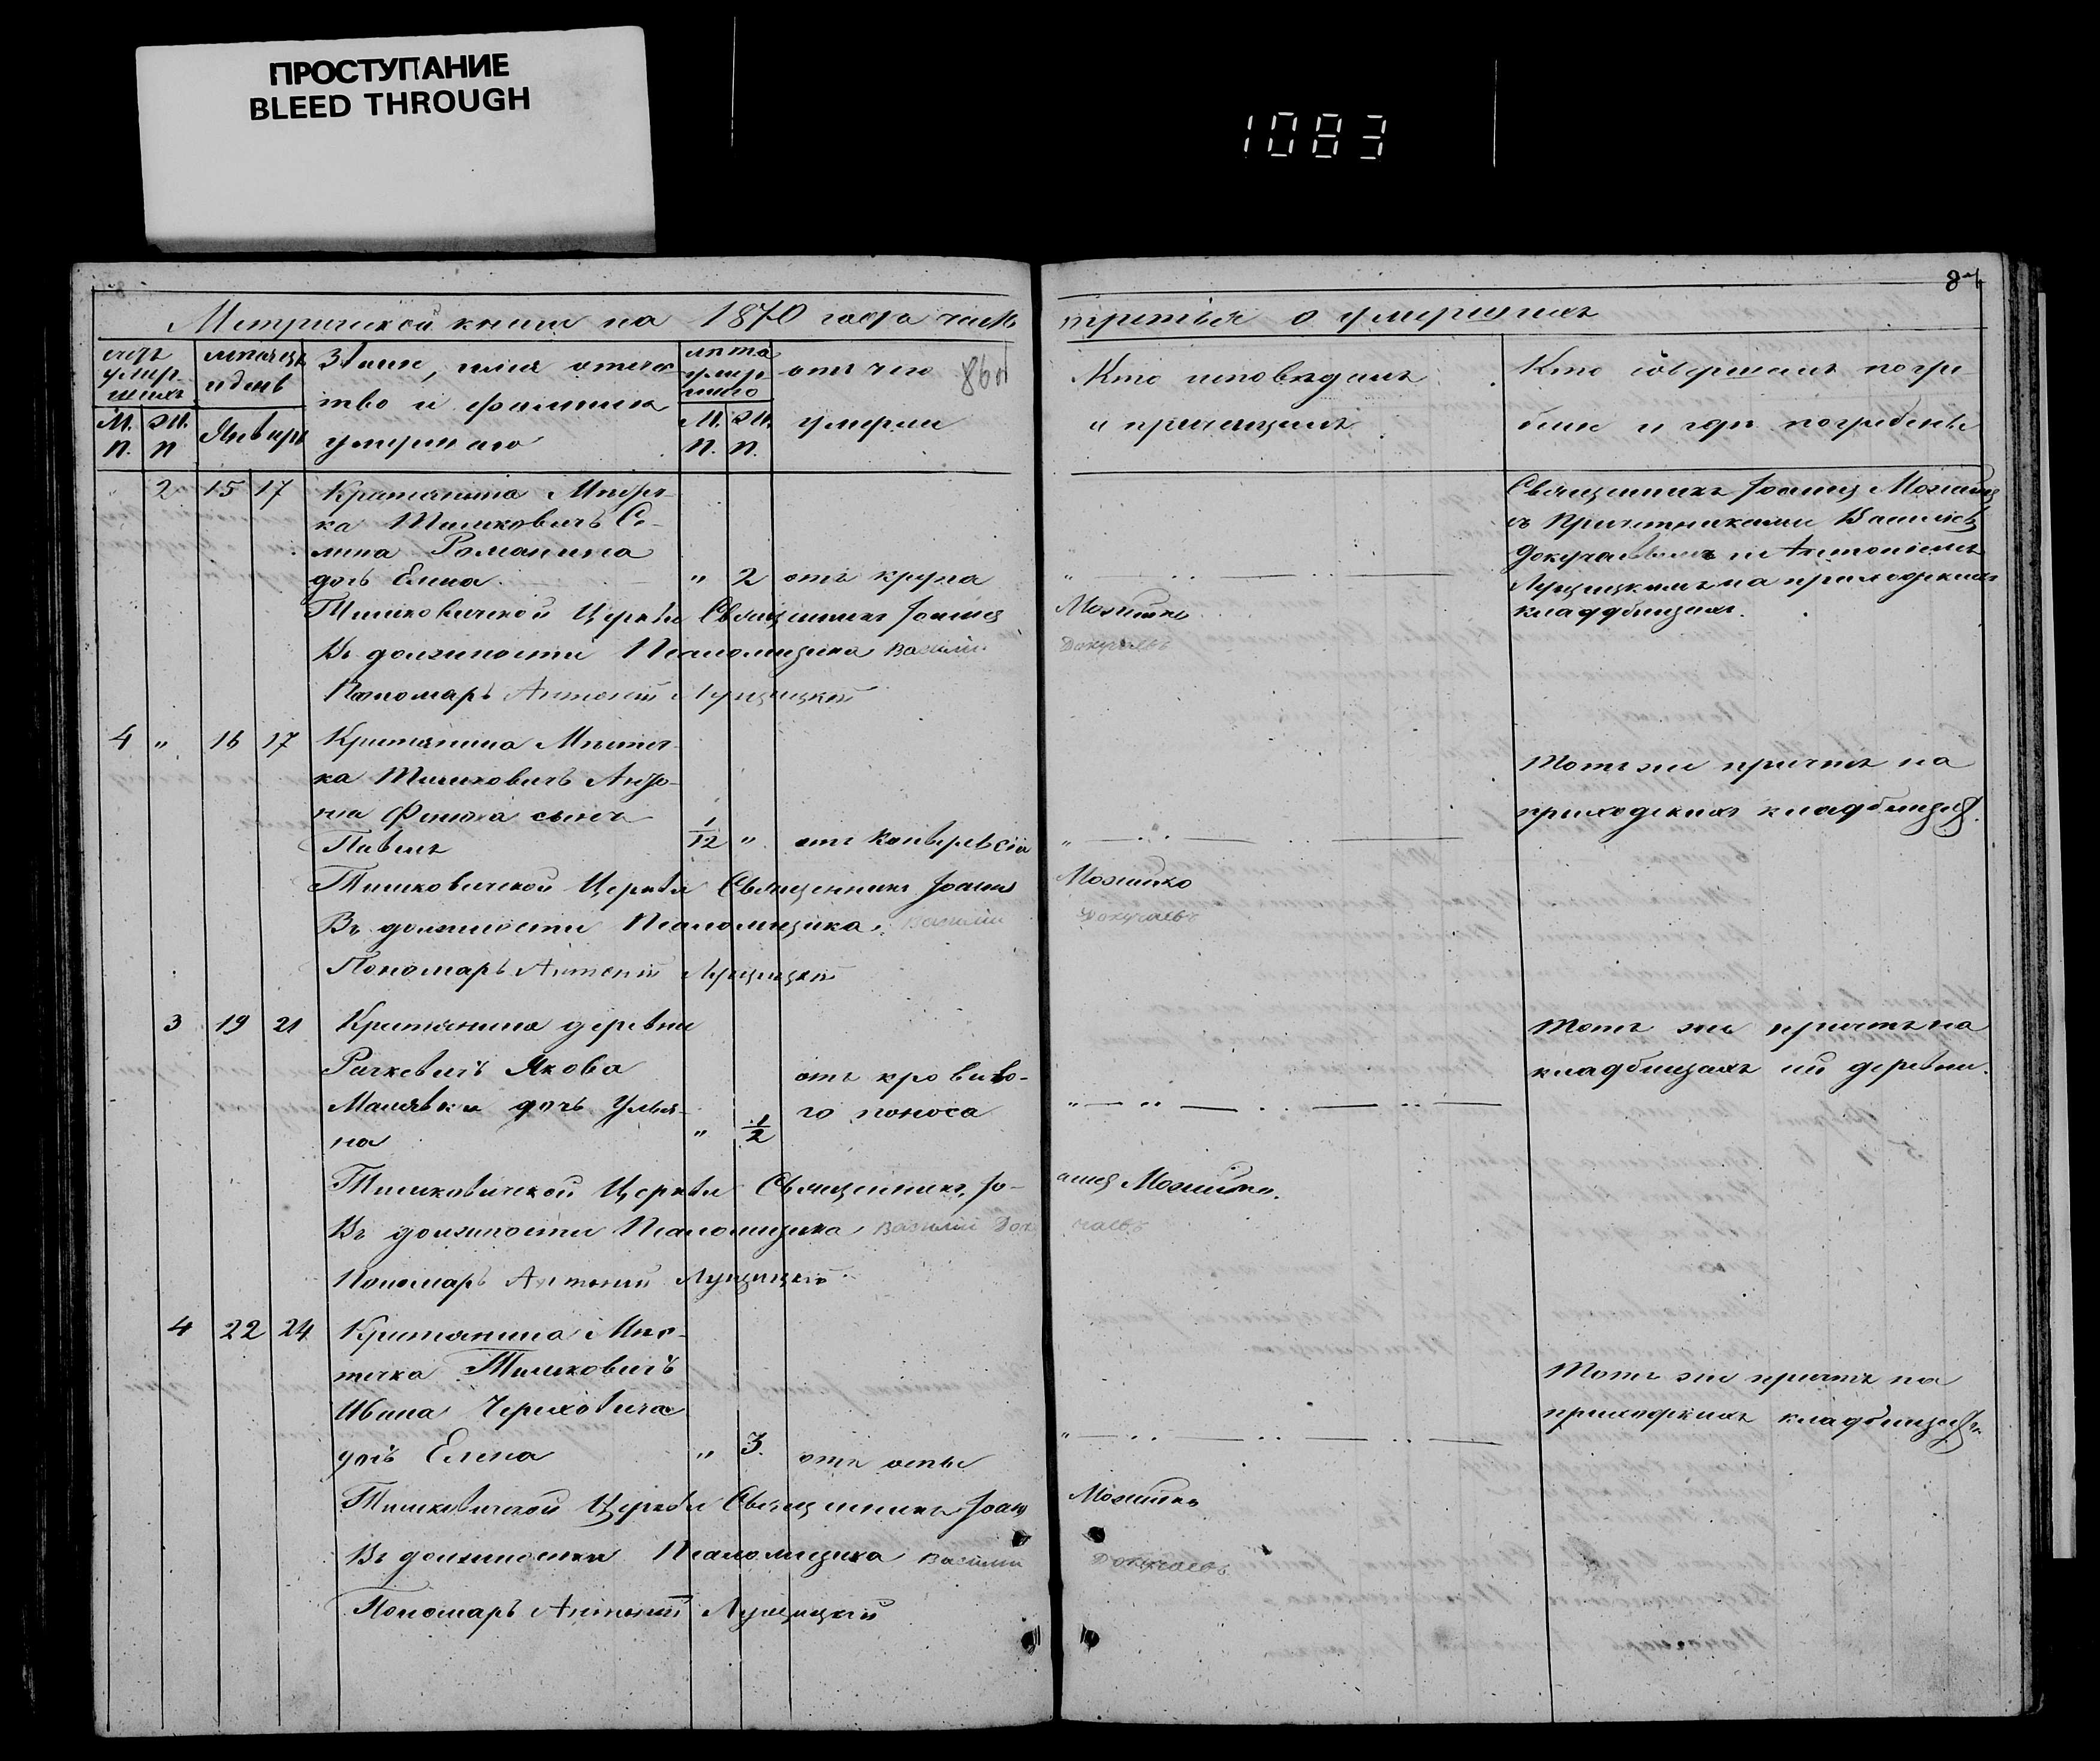 ПРОСТУПАНИЕ
BLEED THROUGH
1083
87
Метрической книги на 1870 года часть третья о умершихъ
счетъ умершихъ
мѣсяцъ и день
Званіе, имя отечество и фамилія умершаго
лѣта умершаго
отъ чего умерли
86об
Кто исповѣдалъ и причащалъ
Кто совершалъ погребеніе и гдѣ погребены
М. п. Ж. п
Январь
М. п. Ж. п.
2 15 17 Крестьянина Мѣстеч-
ка Тимковичъ Се-
мена Романина
дочь Елена " 2 отъ крупа
Священникъ ІоаннъМожейко
съ Причетниками Василіемъ
Докучаевымъ и Антоніемъ
Лущицкимъ на приходскихъ
кладбищахъ.
Тимковичской Церкви Священникъ Іоаннъ Можейко
Въ должности Псаломщика Василій Докучаевъ
Пономарь Антоній Лущицкій
4 " 16 17 Крестьянина Мѣстеч-
ка Тимковичъ
сынъ
Павелъ 1/12 " отъ конвульсіи
Тотъ же причтъ на
приходскихъ кладбищахъ.
Тимковичской Церкви Священникъ Іоаннъ Можейко
Въ должности Псаломщика Василій Докучаевъ
Пономарь Антоній Лущицкій
3 19 21 Крестьянина деревни
Рачкевичъ Якова
Малявки дочь Улья-
на " 1/2
отъ кроваво-
го поноса
Тотъ же причтъ на
кладбищахъ сей деревни.
Тимковичской Церкви Священникъ Іоаннъ Можейко.
Въ должности Псаломщика Василій Докучаевъ
Пономарь Антоній Лущицкій
4 22 24 Крестьянина Мѣс-
течка Тимковичъ
Ивана Териховича
дочь Елена " 3. отъ оспы
Тотъ же причтъ на
приходскихъ кладбищахъ.
Тимковичской Церкви Священникъ Іоаннъ Можейко
Въ должности Псаломщика Василій Докучаевъ
Пономарь Антоній Лущицкій